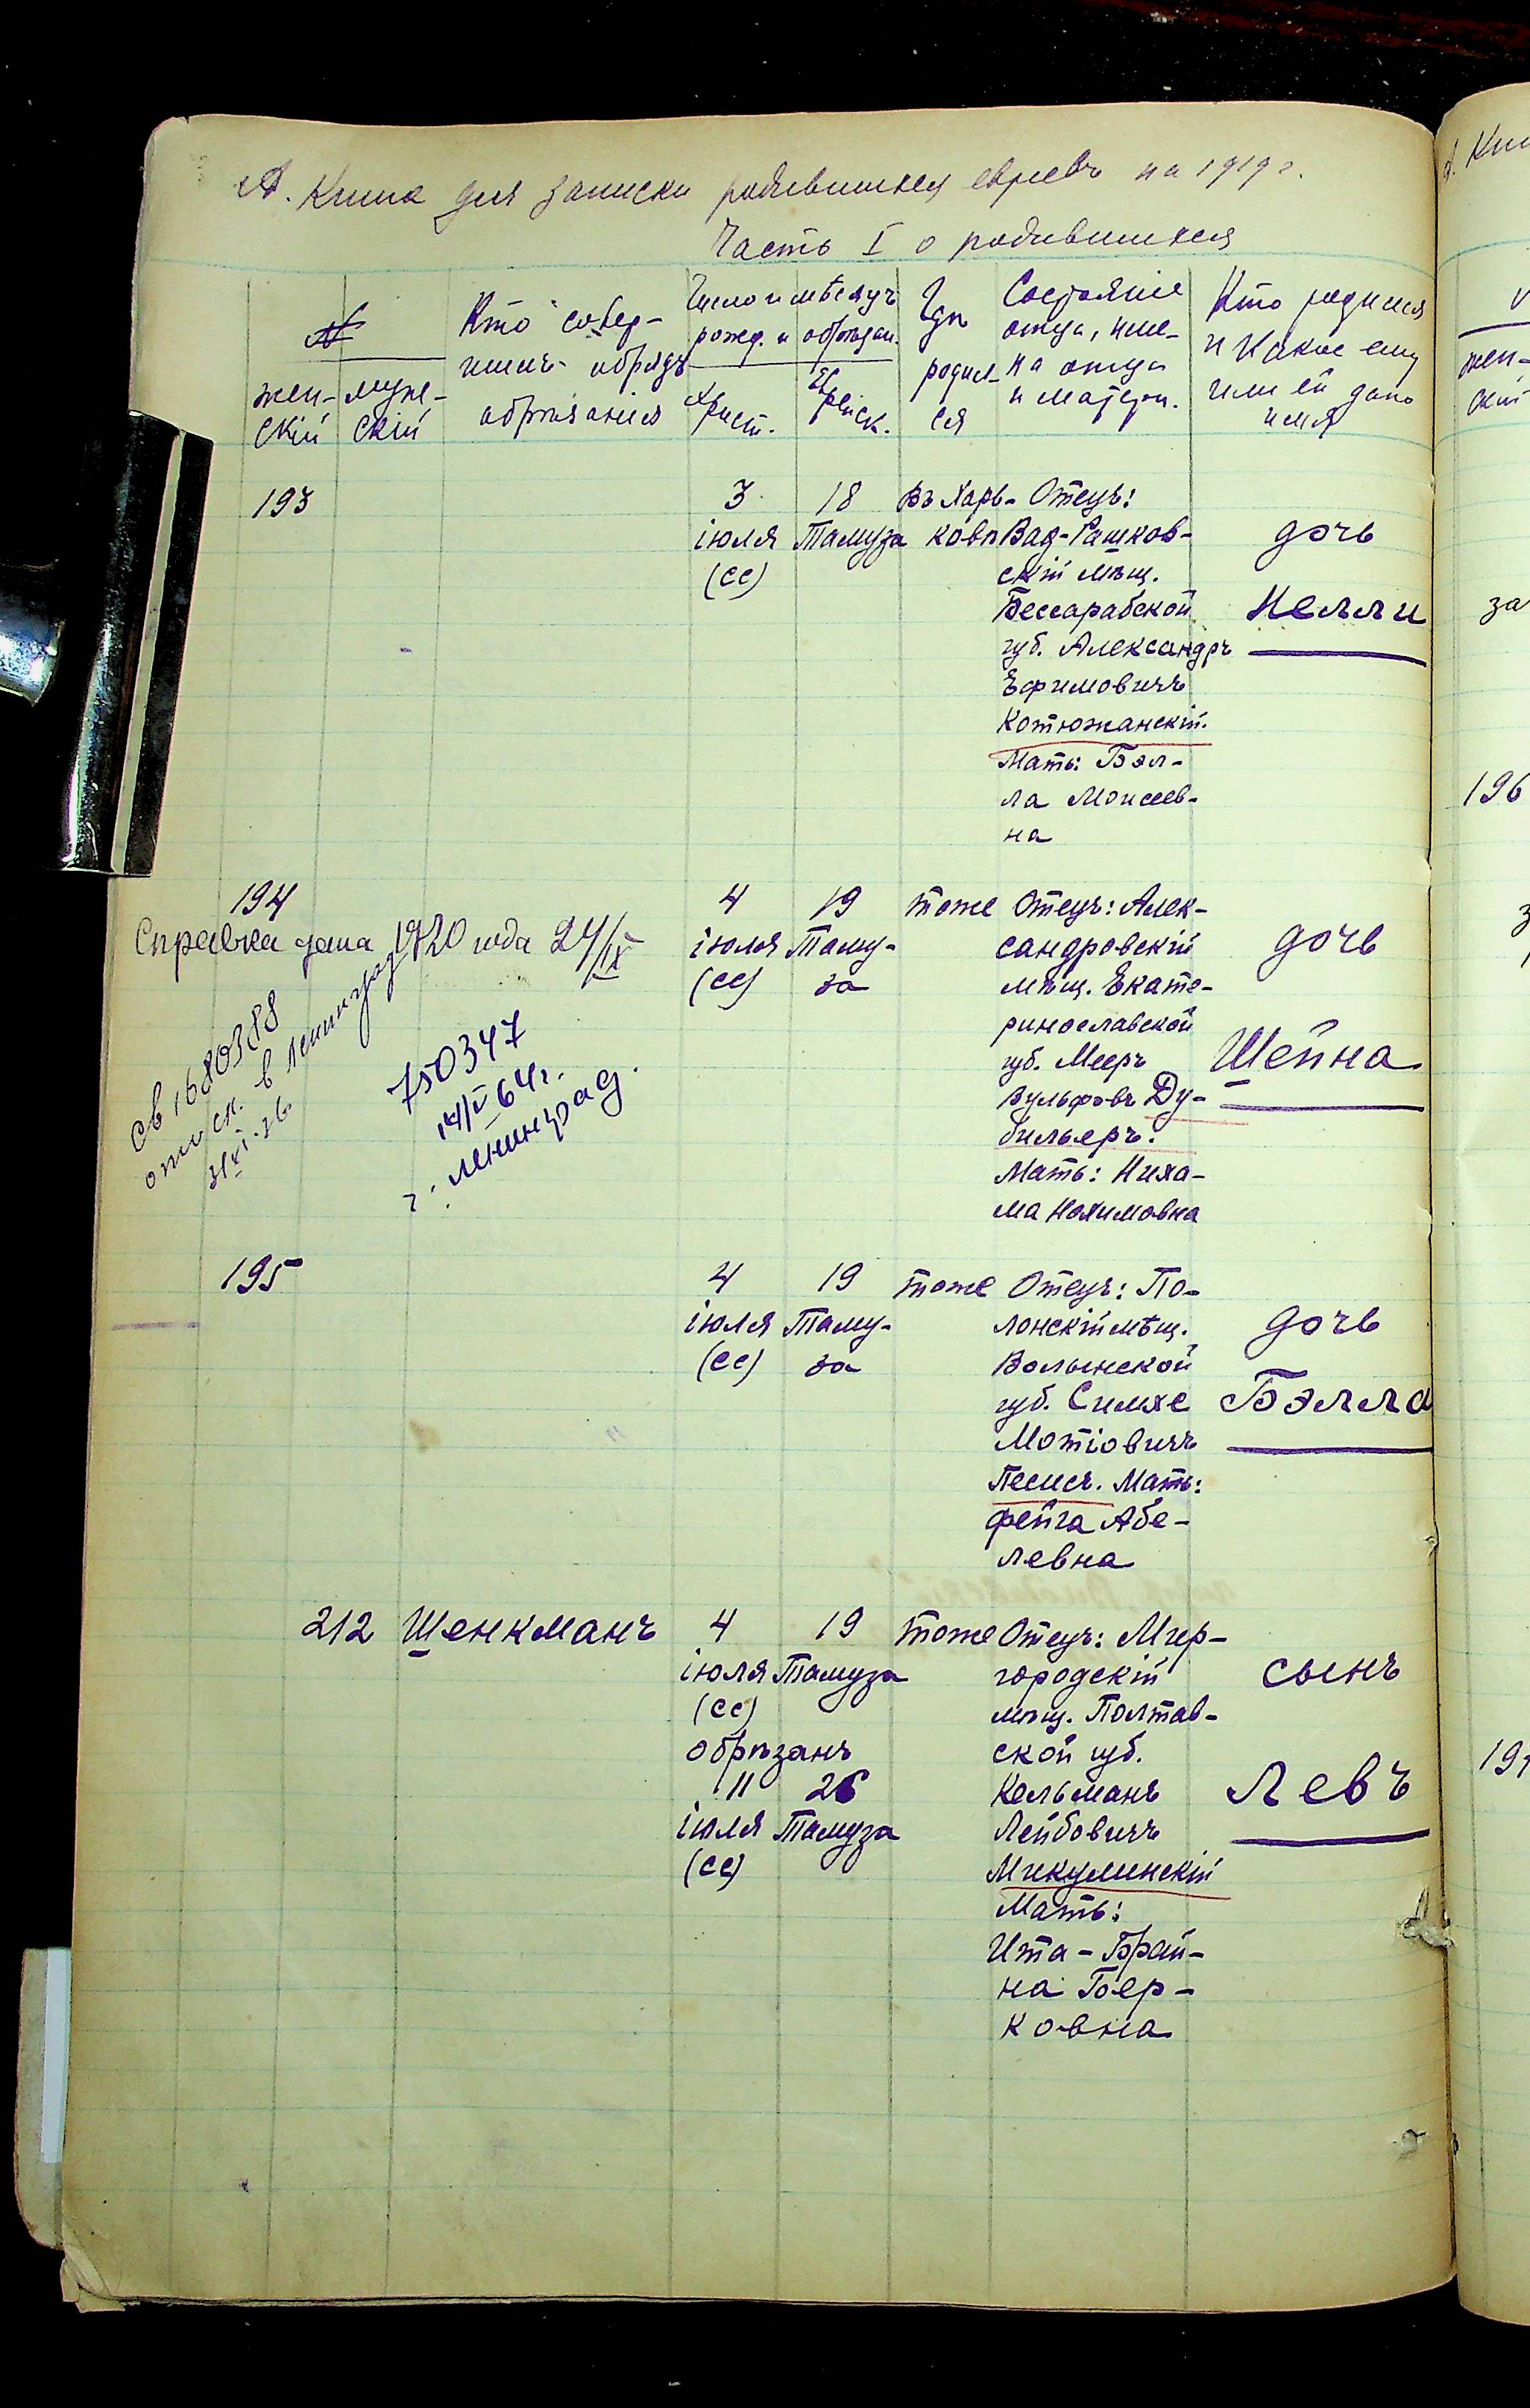 А. Книга для записки родившихся евреевъ на 1919 г.
Часть I о родившихся
№
жен-
скій
муже-
скій
Кто совер-
шилъ обрядъ
обрѣзанія
Число и мѣсяцъ
рожд. и обрѣзан.
Христ.
Еврейск.
Гдѣ
родил-
ся
Состояніе
отца, име-
на отца
и матери.
Кто родился
и какое ему
или ей дано
имя
193
3
іюля
(сс)
18
Тамуза
въ Харь-
ковѣ
Отецъ:
Вад-Рашков-
скій мѣщ.
Бессарабской
губ. Александръ
Ефимовичъ
Котюжанскій.
Мать: Бэл-
ла Моисеев-
на
дочь
Нелли
194
Справка дана 1920 года 24/IX
св 1680388
отписк. в Ленинград
750347
14/V-64г.
г. Ленинград.
4
іюля
(сс)
19
Таму-
за
тоже
Отецъ: Алек-
сандровскій
мѣщ. Екате-
ринославской
губ. Мееръ
Вульфовъ Ду-
бильеръ.
Мать: Ниха-
ма Нохимовна
дочь
Шейна
195
4
іюля
(сс)
19
Таму-
за
тоже
Отецъ: По-
лонскій мѣщ.
Волынской
губ. Симхе
Мотіовичъ
Песисъ. Мать:
Фейга Абе-
левна
дочь
Бэлла
212
Шенкманъ
4
іюля
(сс)
обрѣзанъ
11
іюля
(сс)
19
Тамуза
26
Тамуза
тоже
Отецъ: Мир-
городскій
мѣщ. Полтав-
ской губ.
Кельманъ
Лейбовичъ
Микулинскій
Мать:
Ита-Брай-
на Бер-
ковна
сынъ
Левъ
А. Кни
жен-
скій
за
196